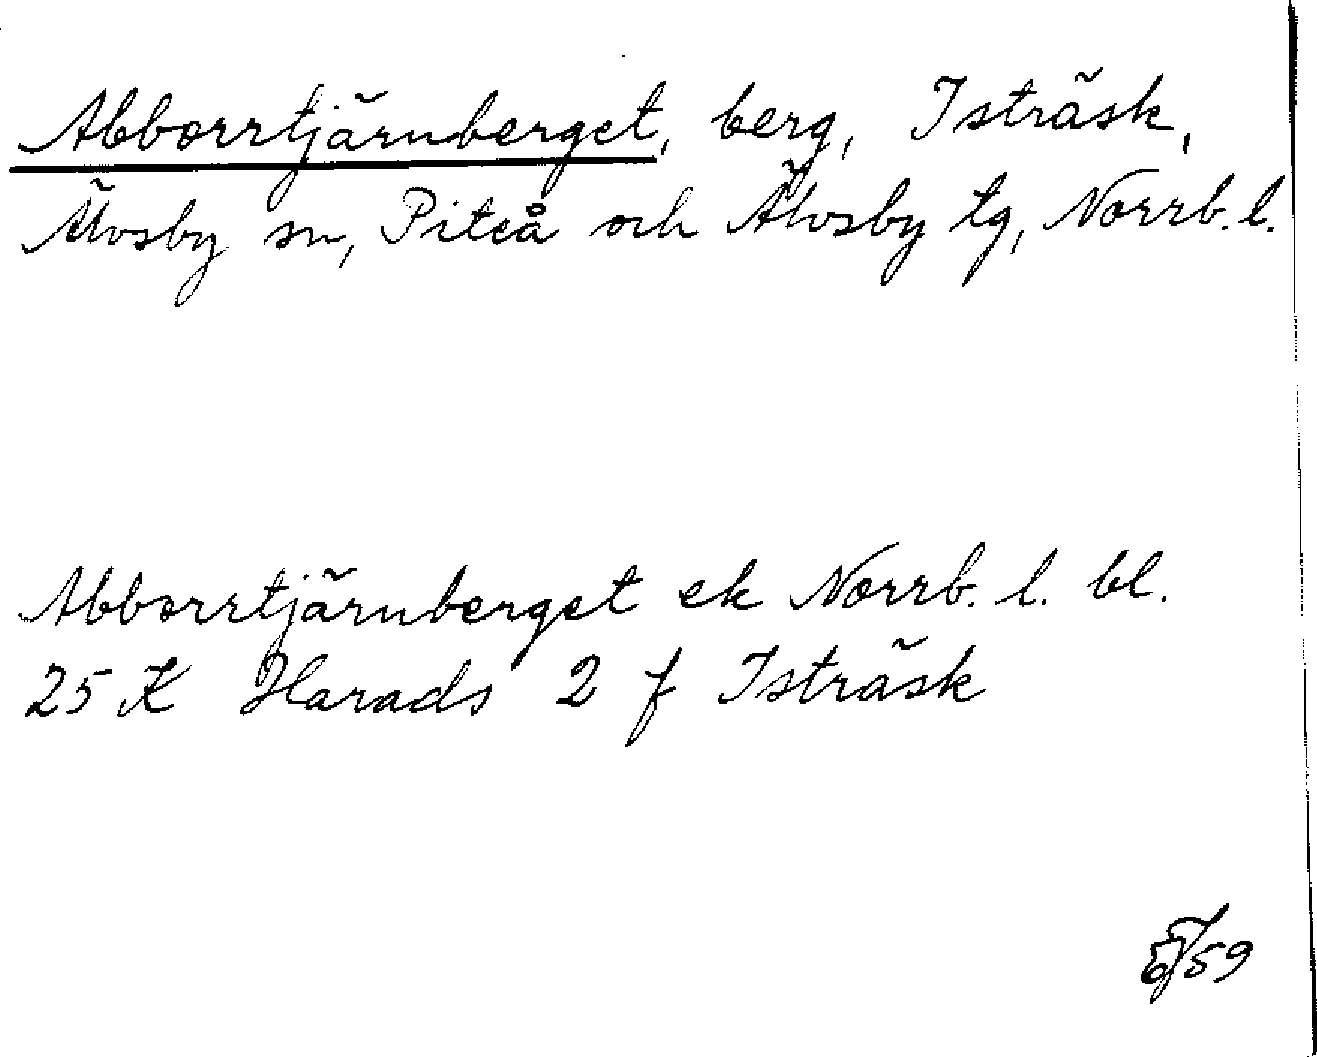 Abborrtjärnberget, berg, Isträsk,
Älvsby sn, Piteå och Älvsby tg, Norrb. l.
Abborrtjärnberget ek Norrb. l. bl.
25 K Harads 2 f Isträsk
59